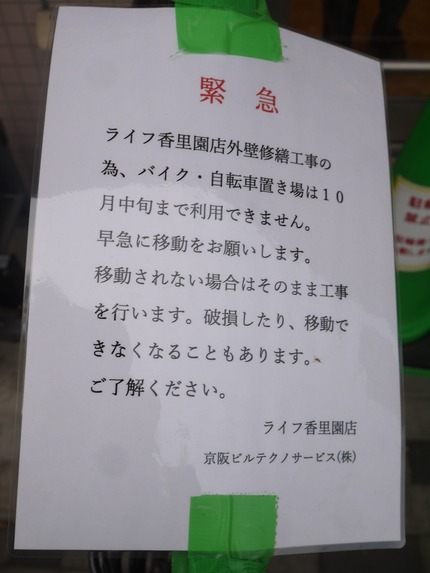 緊急
ライフ香里園店外壁修繕工事の
為、バイク・自転車置き場は10
月中旬まで利用できません。
早急に移動をお願いします。
移動されない場合はそのまま工事
を行います。破損したり、移動で
きなくなることもあります。
ご了解ください。
ライフ香里園店
京阪ビルテクノサービス(株)